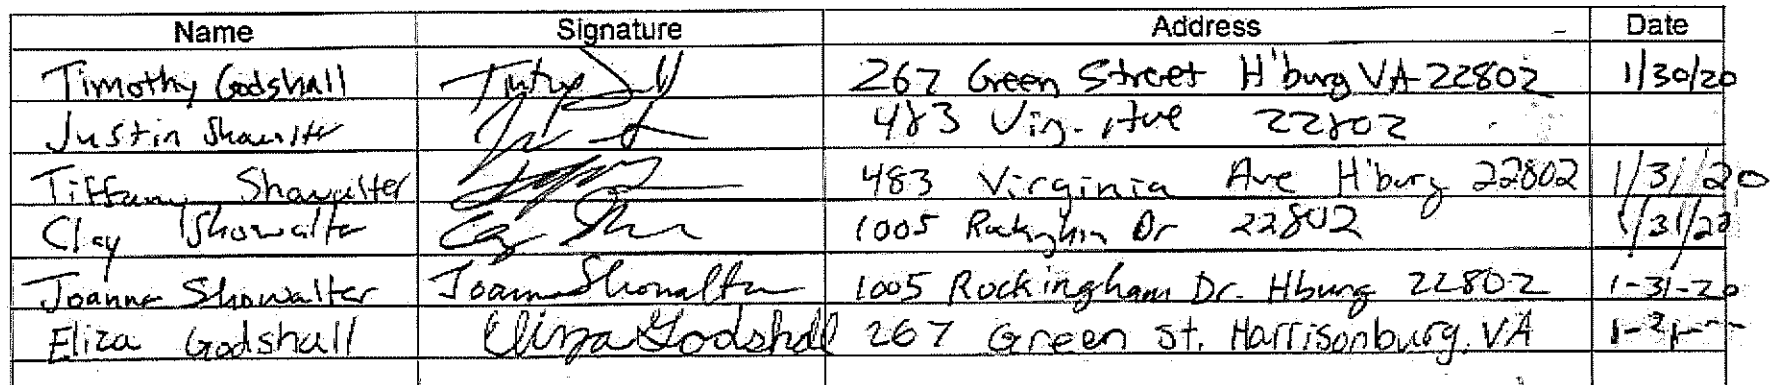 Name Signature Address Date
Timothy Godshall 267 Green Street H'burg VA 22802 1/30/20
Justin Showalter 483 Vir. Ave 22802
Tiffany Showalter 483 Virginia Ave H'burg 22802 1/31/20
Clay Showalter Clay 1005 Rockingham Dr 22802 1/31/20
Joanne Showalter Joanne Showalter 1005 Rockingham Dr. Hburg 22802 1-31-20
Eliza Godshall Eliza Godshall 267 Green St. Harrisonburg, VA